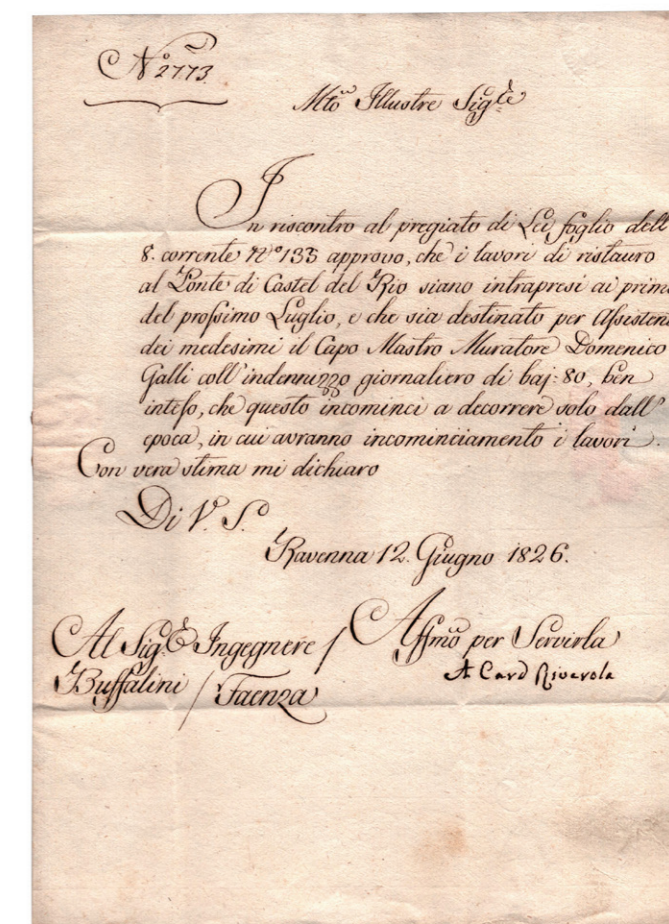 N.° 2773.
Mto Illustre Sigre
In riscontro al pregiato di Lei foglio dell'
8. corrente N° 133 approvo, che i lavori di ristauro
al Ponte di Castel del Rio siano intrapresi ai prim
del prossimo Luglio, e che sia destinato per Assisten
dei medesimi il Capo Mastro Muratore Domenico
Galli coll'indennizzo giornaliero di baj: 80, ben
inteso, che questo incominci a decorrere solo dall'
epoca, in cui avranno incominciamento i lavori.
Con vera stima mi dichiaro
Di V. S.
Ravenna 12. Giugno 1826.
Al Sig.e Ingegnere /
Buffalini / Faenza
Affmo per Servirla
A Card Rivarola